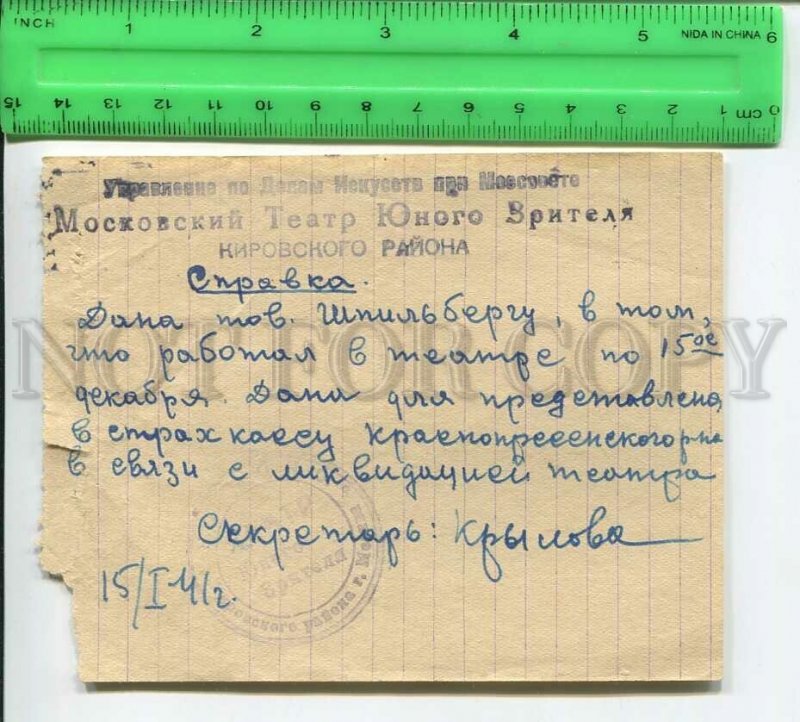 INCH 1 2 3 4 5 6 NIDA IN CHINA
15 14 13 12 11 10 9 8 7 6 5 4 3 2 1 0 cm
Управление по Делам Искусств при Моссовете
Московский Театр Юного Зрителя
КИРОВСКОГО РАЙОНА
Справка.
Дана тов. Шпильбергу, в том,
что работал в театре по 15ое
декабря. Дана для представлена
в страхкассу Краснопресненского р-на
в связи с ликвидацией театра
Секретарь: Крылова
15/I 41г.
Зрителя
района г.
NOT FOR COPY